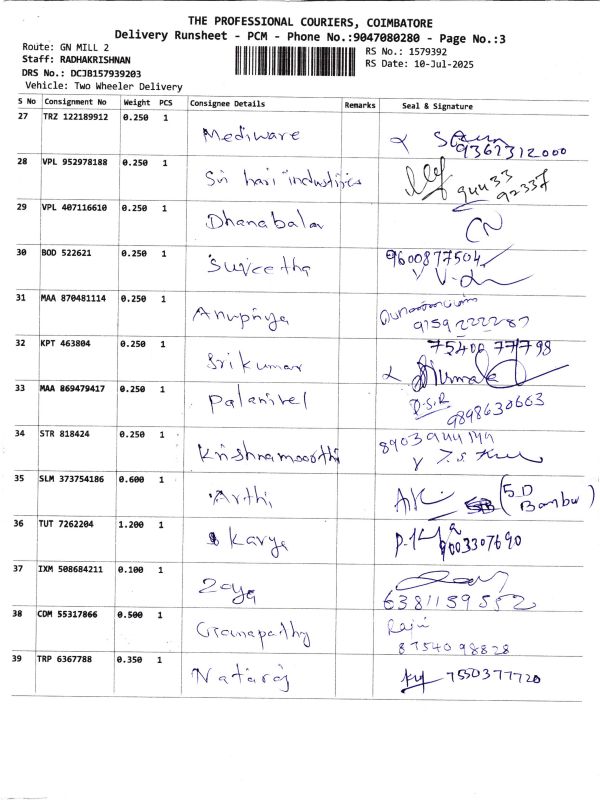 THE PROFESSIONAL COURIERS, COIMBATORE
Delivery Runsheet - PCM - Phone No.:9047080280 - Page No.:3
Route: GN MILL 2
RS No.: 1579392
Staff: RADHAKRISHNAN
RS Date: 10-Jul-2025
DRS No.: DCJB157939203
Vehicle: Two Wheeler Delivery
S No Consignment No Weight PCS Consignee Details Remarks Seal & Signature
27 TRZ 122189912 0.250 1 Mediware
9367312000
28 VPL 952978188 0.250 1 Sri hari industries
94433
92337
29 VPL 407116610 0.250 1 Dhanabalan
30 BOD 522621 0.250 1 Suveetha 9600877504
31 MAA 870481114 0.250 1 Anupriya
9159222287
32 KPT 463804 0.250 1 Srikumar 75400 77798
Nirmala
33 MAA 869479417 0.250 1 Palanivel P.S.R
9898630663
34 STR 818424 0.250 1 Krishnamoorthi
35 SLM 373754186 0.600 1 Arthi AK
36 TUT 7262204 1.200 1 Kavya
9003307690
37 IXM 508684211 0.100 1 Zoya
6381159552
38 CDM 55317866 0.500 1 Ganapathy Rajii
8754098828
39 TRP 6367788 0.350 1 Nataraj 7550377720